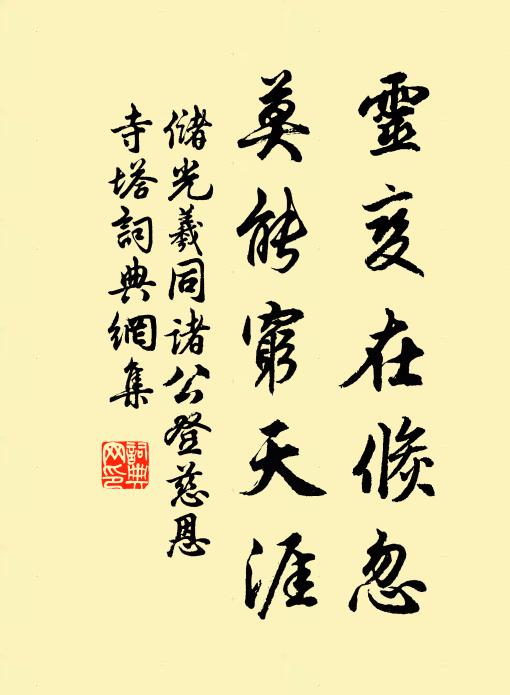 靈变在倐忽
莫能窮天涯
儲光羲同諸公登慈恩
寺塔詞典網集
詞典
网印